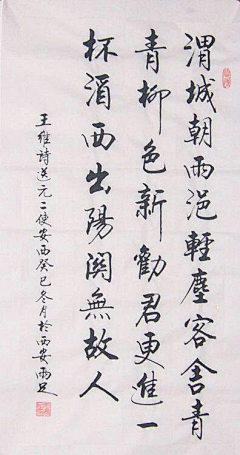 渭城朝雨浥輕塵客舍青
青柳色新勸君更進一
杯酒西出陽關無故人
王維詩送元二使安西癸巳冬月於西安雨